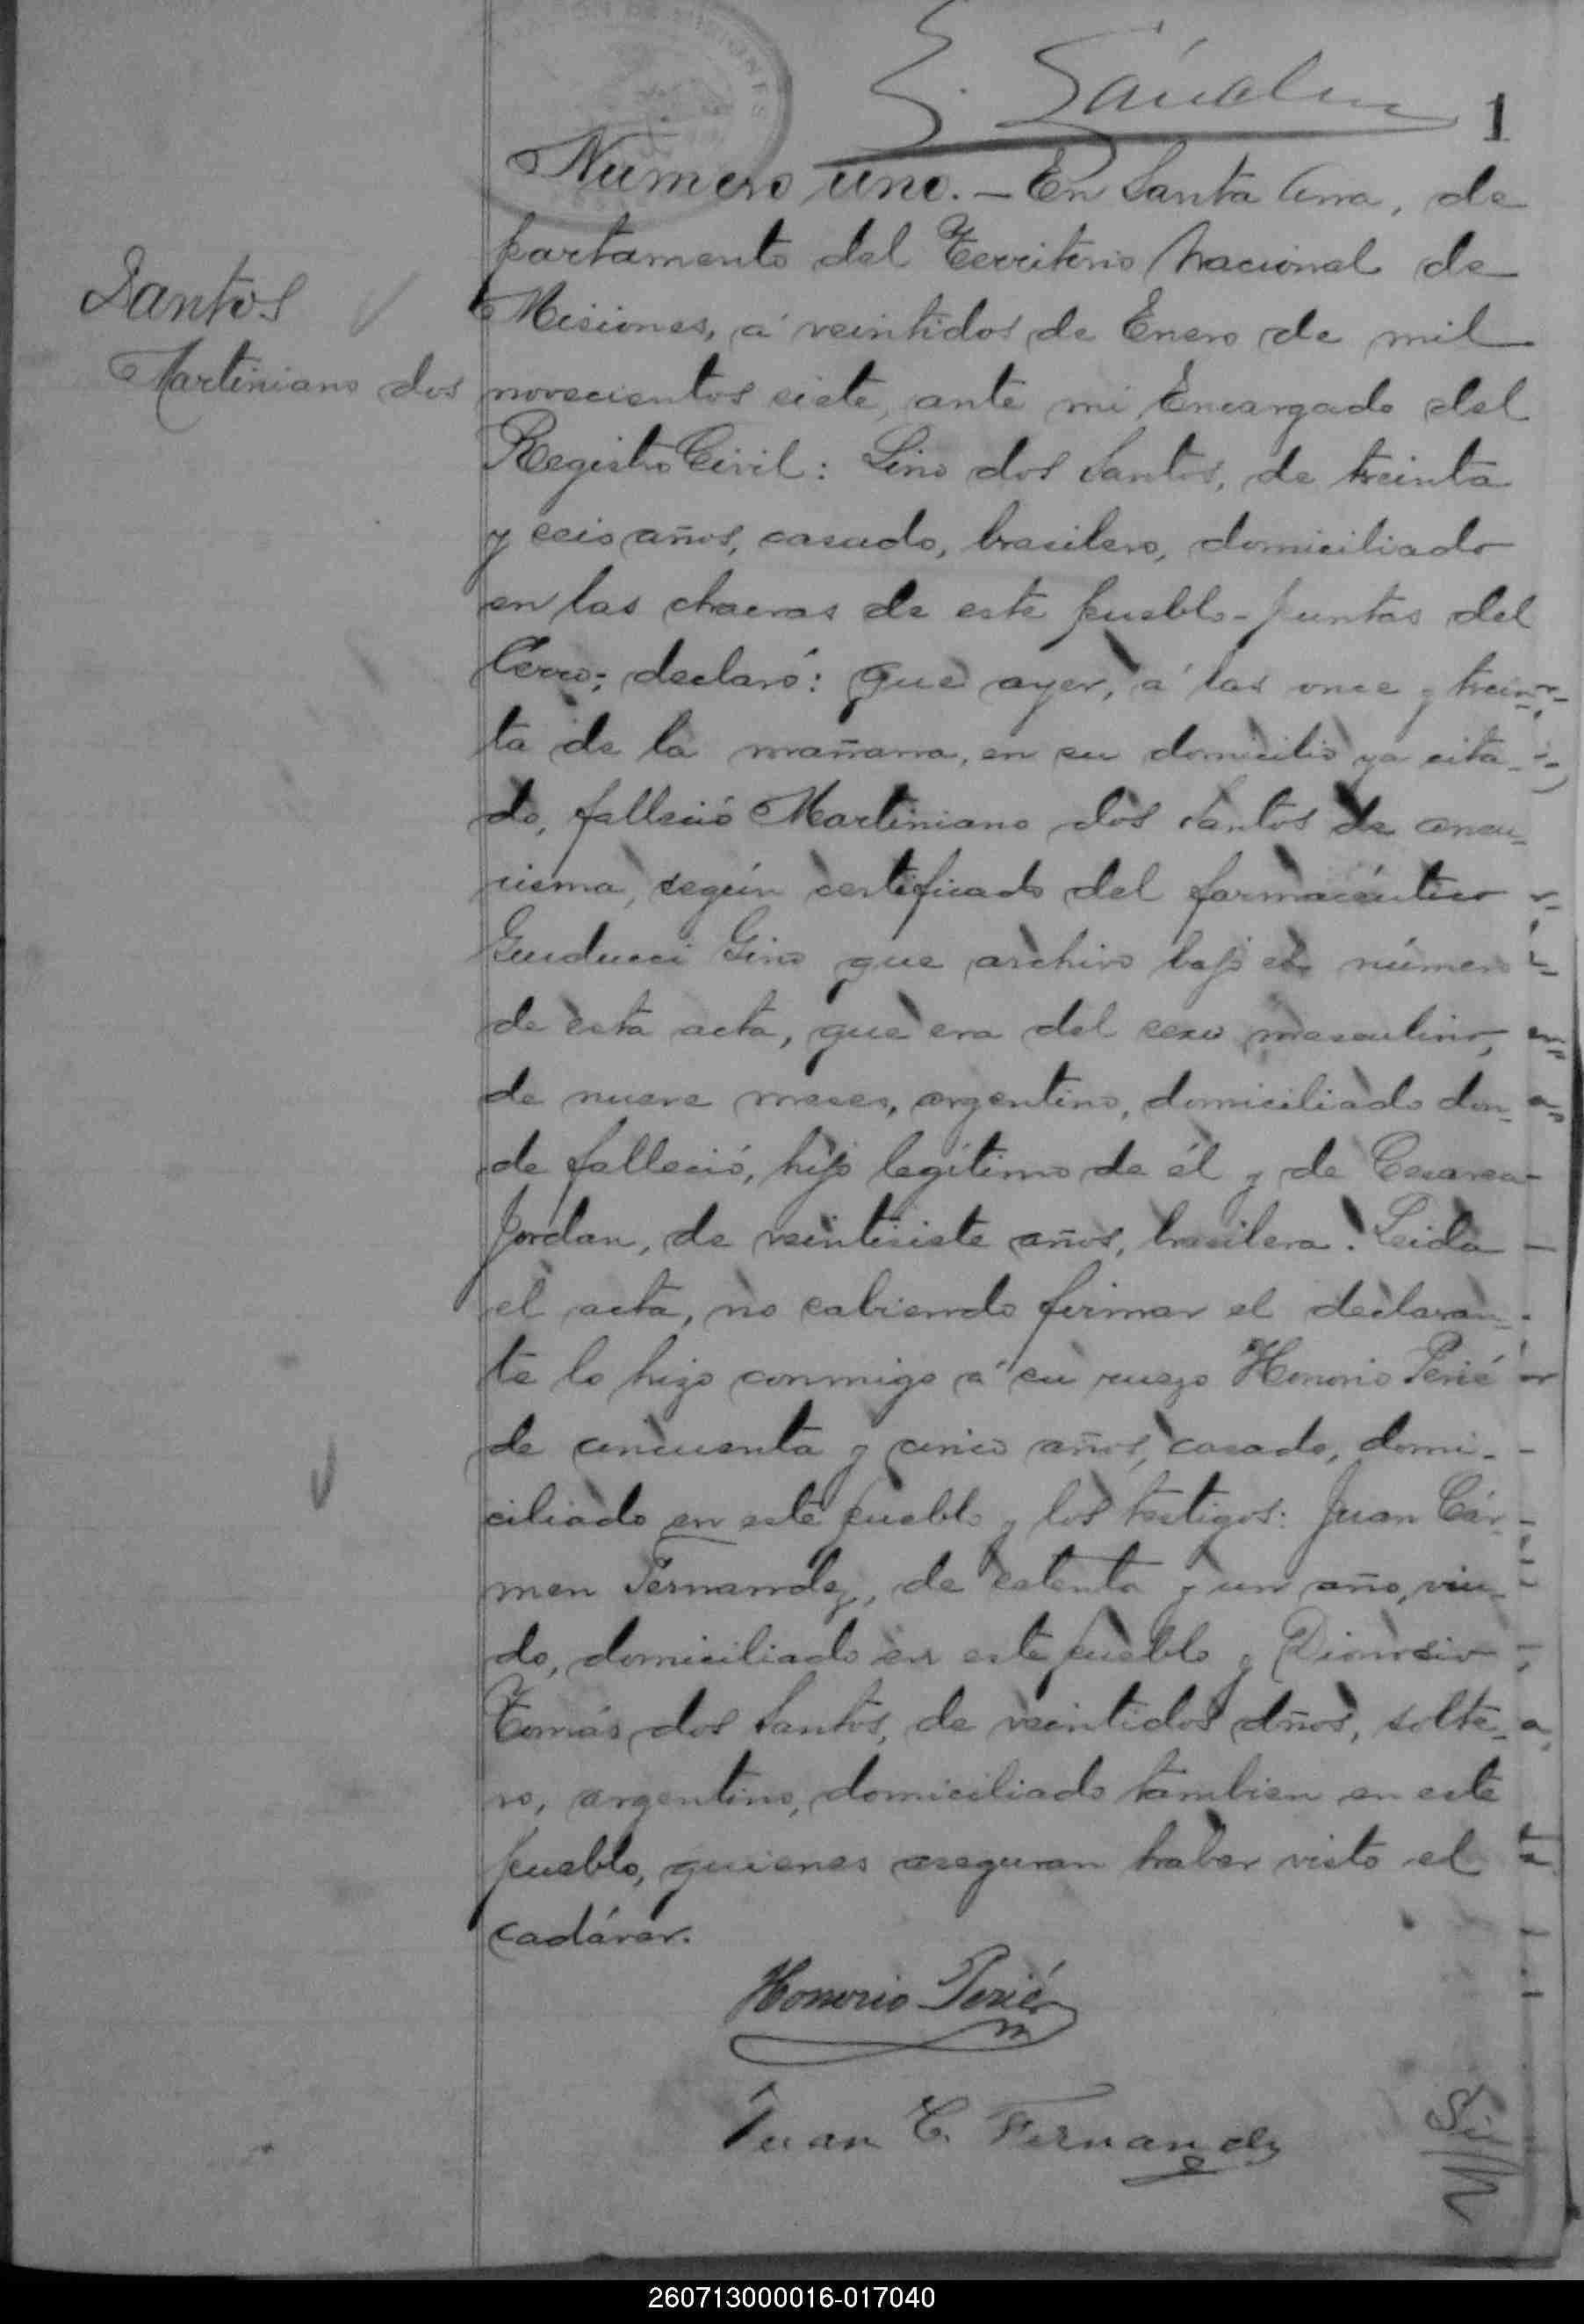 1
Numero uno. – En Santa Ana, de
partamento del Territorio Nacional de
Misiones, á veintidos de Enero de mil
novecientos siete, ante mi Encargado del
Registro Civil: Lino dos Santos, de treinta
y seis años, casado, brasilero, domiciliado
en las chacras de este pueblo - puntas del
Cerro; declaró: que ayer, á las once y trein-
ta de la mañana, en su domicilio ya cita-
do, falleció Martiniano dos Santos de aneu-
risma, según certificado del farmacéutico
Guiducci Gino que archivo bajo el número
de esta acta, que era del sexo masculino,
de nueve meses, argentino, domiciliado don-
de falleció, hijo legítimo de él y de Cesarea
Jordan, de veintisiete años, brasilera. Leida
el acta, no sabiendo firmar el declaran-
te lo hizo conmigo á su ruego Honorio Perié
de cincuenta y cinco años, casado, domi-
ciliado en este pueblo y los testigos: Juan Cár-
men Fernandez, de setenta y un año, viu-
do, domiciliado en este pueblo y Dionosio
Tomás dos Santos, de veintidos años, solte-
ro, argentino, domiciliado tambien en este
pueblo, quienes aseguran haber visto el
cadáver.
Honorio Perié
Juan C. Fernandez
Santos
Martiniano dos
260713000016-017040